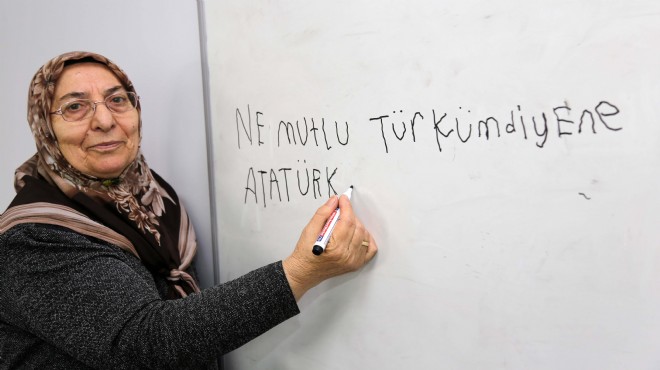 NE mUTLU TürKümdiyEne
ATATÜRK